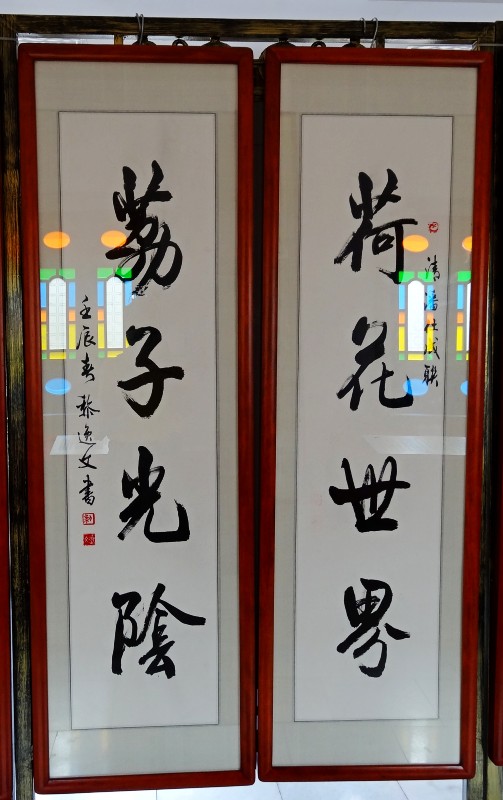 荷花世界
清潘仕成联
荔子光陰
壬辰春黎逸文書